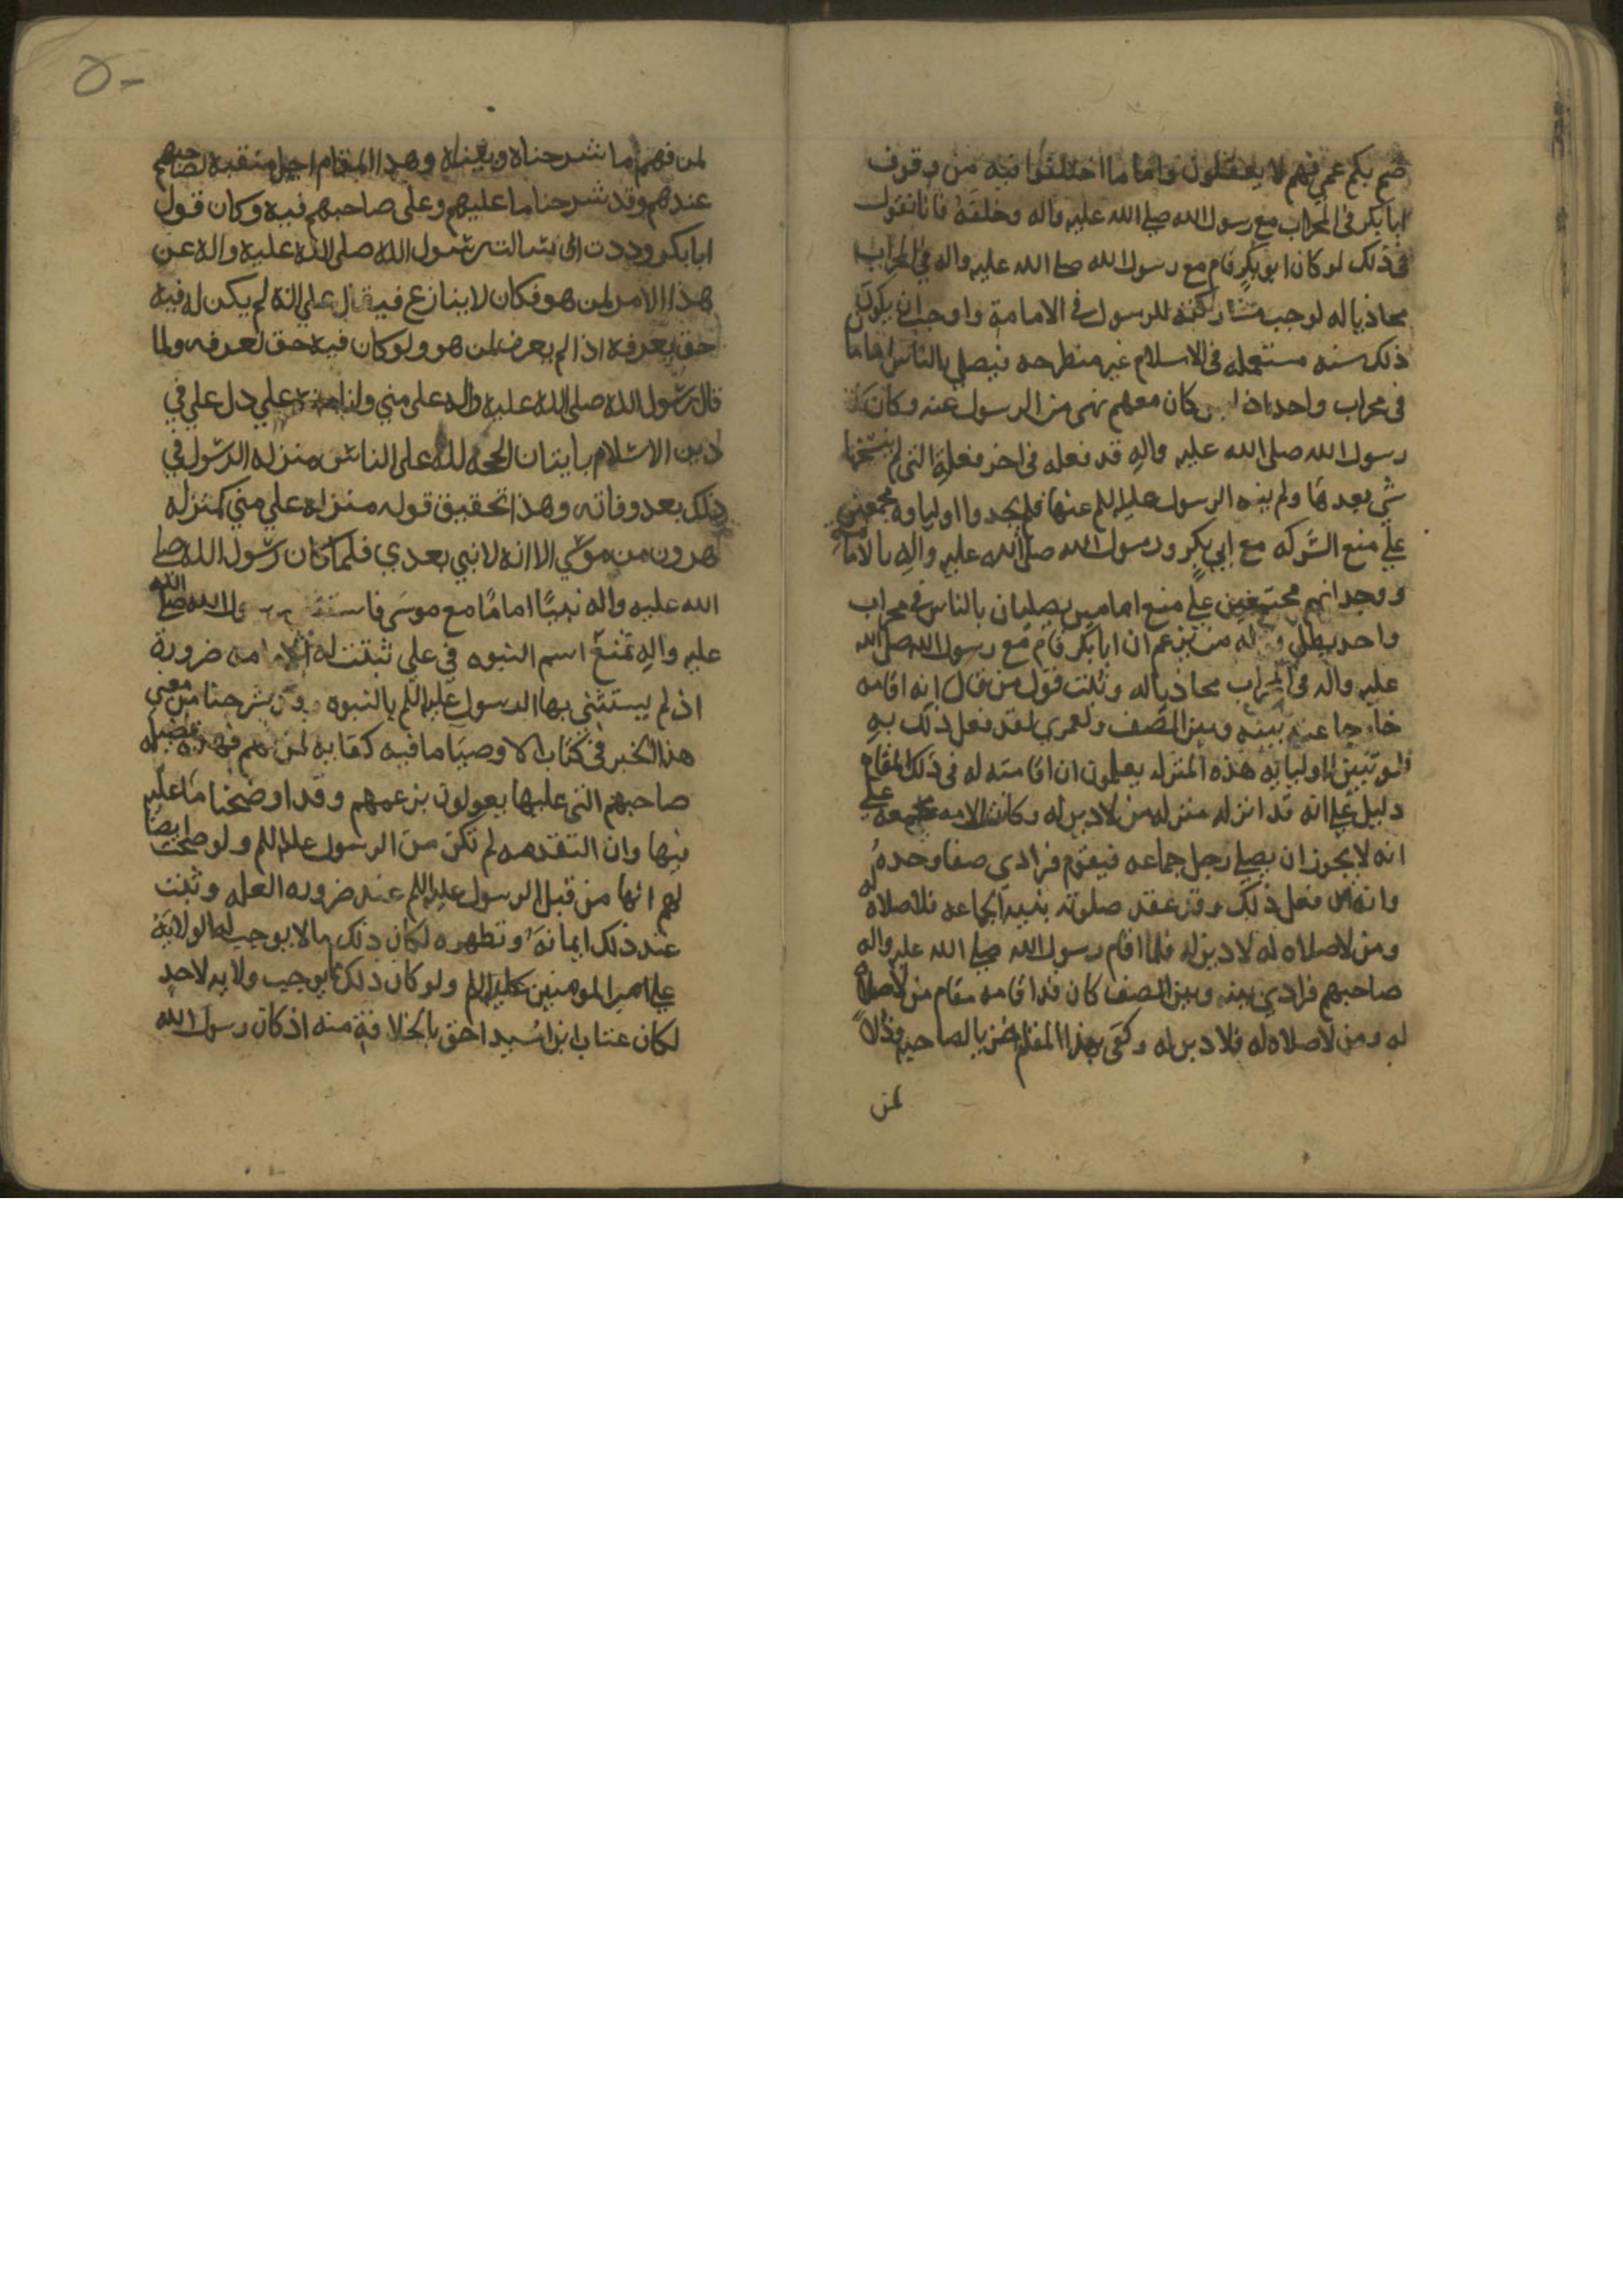 صم بكم عمي فهم لا يعقلون واما ما اختلفوا فيه من وقوف
ابا بكر في المحراب مع رسول الله صلي الله عليه واله وخلفه فانا نقول
في ذلك لو كان ابو بكر قام مع رسول الله صلا الله عليه واله في المحراب
محاذيا له لوجب مشاركته للرسول في الامامة واوجب ان يكون
ذلك سنه مستعمله في الاسلام غير منطرحه فيصلي بالناس اماما
في محراب واحد اذا كان معهم نهي من الرسول عنه وكان
رسول الله صلى الله عليه واله قد فعله في اخر فعله التي لم ينسخها
شي بعدها ولم ينه الرسول عليه السلم عنها فلم يجدوا اولياوه مجمعين
علي منع الشركه مع ابي بكر ورسول الله صلى الله عليه واله بالامامة
ووجدانهم مجتمعين علي منع امامين يصليان بالناس في محراب
واحد يبطل له من يزعم ان ابا بكر قام مع رسول الله صلى الله
عليه واله في المحراب محاذيا له وثبت قول من قال انه اقامه
خارجا عنه بينه وبين الصف ولعمري لقد فعل ذلك به
فلو تبين اوليا به هذه المنزله يعلمون ان اقامته له في ذلك المقام
دليل علي انه قد انزله منزله من لا دين له وكانت الامه مجمعه علي
انه لا يجوز ان يصلي رجل جماعه فيقوم فرادي صفا وحده
وانه من فعل ذلك وقد عقد صلوته بنية الجماعه فلا صلاه له
ومن لا صلاه له لا دين له فلما اقام رسول الله صلي الله عليه واله
صاحبهم فرادي بينه وبين الصف كان قد اقامه مقام من لا صلاة
له ومن لا صلاه له فلا دين له وكفي بهذا المقام خزيا لصاحبه وذلا
لمن
٥٠
لمن فهم ما شرحناه وبيناه وهذا المقام اجل منقبه لصاحبهم
عندهم وقد شرحنا ما عليهم وعلى صاحبهم فيه وكان قول
ابا بكر وددت اني سالت رسول الله صلى الله عليه واله عن
هذا الامر لمن هو فكان لا ينازع فيه علي انه لم يكن له فيه
حق يعرفه اذا لم يعرف لمن هو ولو كان فيه حق لعرفه ولما
قال رسول الله صلى الله عليه واله علي مني وانا من علي دل علي في
دين الاسلام باتيان الحجه لله على الناس منزله الرسول في
ذلك بعد وفاته وهذا تحقيق قوله منزلة علي مني كمنزله
هرون من موسي الا انه لا نبي بعدي فلما كان رسول الله صلى
الله عليه واله نبيا اماما مع موسى رسول الله صلى الله
عليه واله تمنع اسم النبوه في علي ثبتت له الامامه ضرورة
اذ لم يستثني بها الرسول عليه السلم بالنبوه وقد شرحنا من معني
هذا الخبر في كتاب الاوصيا ما فيه كفايه لمن فهم فهذه فضيلة
صاحبهم التي عليها يعولون بزعمهم وقد اوضحنا ما عليه
فيها وان التقدمه لم تكن من الرسول عليه السلم ولو صحت ايضا
لهم انها من قبل الرسول عليه السلم عند ضروره العله وثبت
عند ذلك ايمانه وتطهره لكان ذلك مالا يوجب له الولاية
علي امير المومنين عليه السلم ولو كان ذلك مما يوجب ولايه لاحد
لكان عتاب ابن اسيد احق بالخلافة منه اذ كان رسول الله